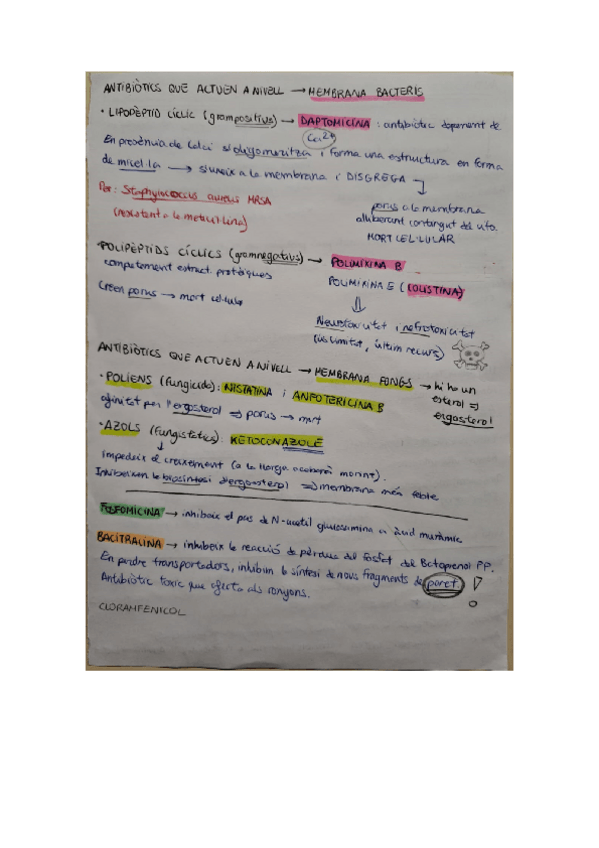 ANTIBIÒTICS QUE ACTUEN A NIVELL → MEMBRANA BACTERIS
· LIPOPÈPTID CÍCLIC (grampositius) → DAPTOMICINA : antibiòtic dependent de
Ca2+
En presència de Calci s'oligomeritza i forma una estructura en forma
de micel·la → s'uneix a la membrana i DISGREGA
porus a la membrana
alliberant contingut del
MORT CEL·LULAR
Per: Staphylococcus aureus MRSA
(resistent a la meticil·lina)
· POLIPÈPTIDS CÍCLICS (gramnegatius) → POLIMIXINA B
comportament estruct. protèiques
POLIMIXINA E (COLISTINA)
Creen porus → mort cel·lular
⇓
Neurotoxicitat i nefrotoxicitat
(ús limitat, últim recurs)
ANTIBIÒTICS QUE ACTUEN A NIVELL → MEMBRANA FONGS → hi ha un
esterol ⇒
ergosterol
· POLIENS (Fungicida): NISTATINA i ANFOTERICINA B
afinitat per l'ergosterol ⇒ porus → mort
· AZOLS (Fungistàtics) KETOCONAZOLE
↓
Impedeix el creixement (a la llarga acabarà morint).
Inhibeixen la biosíntesi d'ergosterol ⇒ membrana més feble
FOSFOMICINA → inhibeix el pas de N-acetil glucosamina a àcid muràmic
BACITRACINA → inhibeix la reacció de pèrdua del fosfat del Bctoprenol PP.
En perdre transportadors, inhibim la síntesi de nous fragments de paret. !
Antibiòtic tòxic que afecta als ronyons.
CLORAMFENICOL